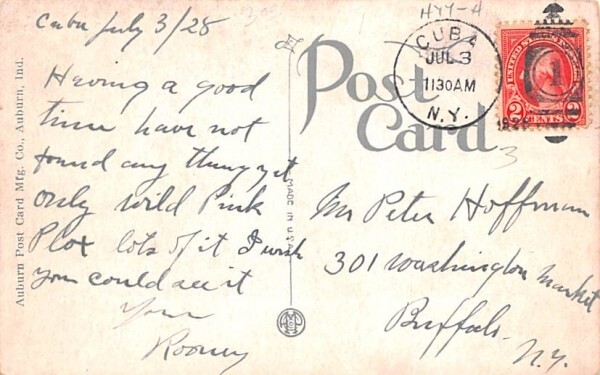 Cuba July 3/28
HYY-A
Having a good
time have not
found any thing yet
only wild Pink
Plox lots of it I wish
you could see it
Your
Rooney
Auburn Post Card Mfg. Co., Auburn, Ind.
MADE IN U.S.A.
Post
Card
CUBA
JUL 3
1130AM
N.Y.
1928
UNITED STATES
2 CENTS 2
1
3
Mr Peter Hoffman
301 Washington Market
Buffalo
N.Y.